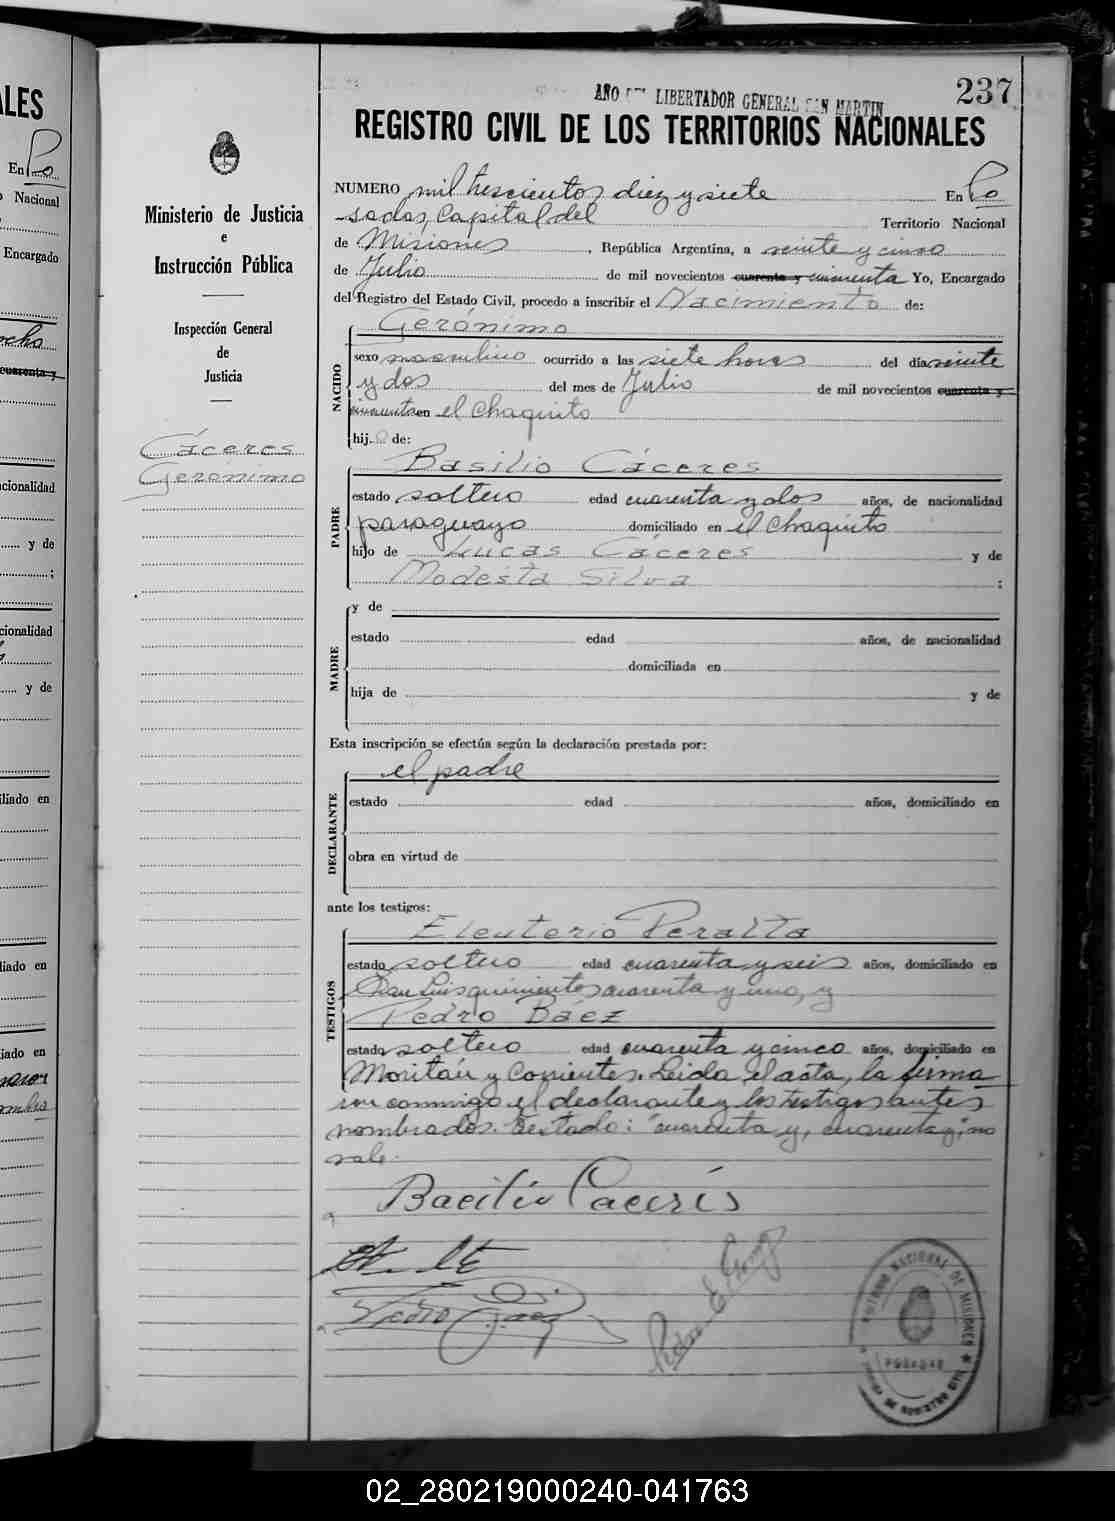 237
AÑO DEL LIBERTADOR GENERAL SAN MARTIN
REGISTRO CIVIL DE LOS TERRITORIOS NACIONALES
Ministerio de Justicia
e
Instrucción Pública
Inspección General
de
Justicia
Cáceres
Gerónimo
NUMERO mil trescientos diez y siete En Po
sadas, Capital del Territorio Nacional
de Misiones, República Argentina, a veinte y cinco
de Julio de mil novecientos cuarenta y cincuenta Yo, Encargado
del Registro del Estado Civil, procedo a inscribir el Nacimiento de:
NACIDO
Gerónimo
sexo masculino ocurrido a las siete horas del día veinte
y dos del mes de Julio de mil novecientos cuarenta y
cincuenta en el Chaquito
hijo de:
PADRE
Basilio Cáceres
estado soltero edad cuarenta y dos años, de nacionalidad
paraguayo domiciliado en el Chaquito
hijo de Lucas Cáceres y de
Modesta Silva ;
MADRE
y de
estado edad años, de nacionalidad
domiciliada en
hija de y de
Esta inscripción se efectúa según la declaración prestada por:
DECLARANTE
el padre
estado edad años, domiciliado en
obra en virtud de
ante los testigos:
TESTIGOS
Eleuterio Peralta
estado soltero edad cuarenta y seis años, domiciliado en
San Luis quinientos cuarenta y uno, y
Pedro Báez
estado soltero edad cuarenta y cinco años, domiciliado en
Moritán y Corrientes. Leida el acta, la firma
con conmigo el declarante y los testigos antes
nombrados. Testado: "cuarenta y, cuarenta y", no
vale.
Bacilio Caceris
Pedro Baez
Pedro E. Gomez
TERRITORIO NACIONAL DE MISIONES
POSADAS
OFICINA DE REGISTRO CIVIL
ALES
En Po
o Nacional
Encargado
ocho
cuarenta y
acionalidad
y de
;
cionalidad
y de
iliado en
liado en
iado en
02_280219000240-041763